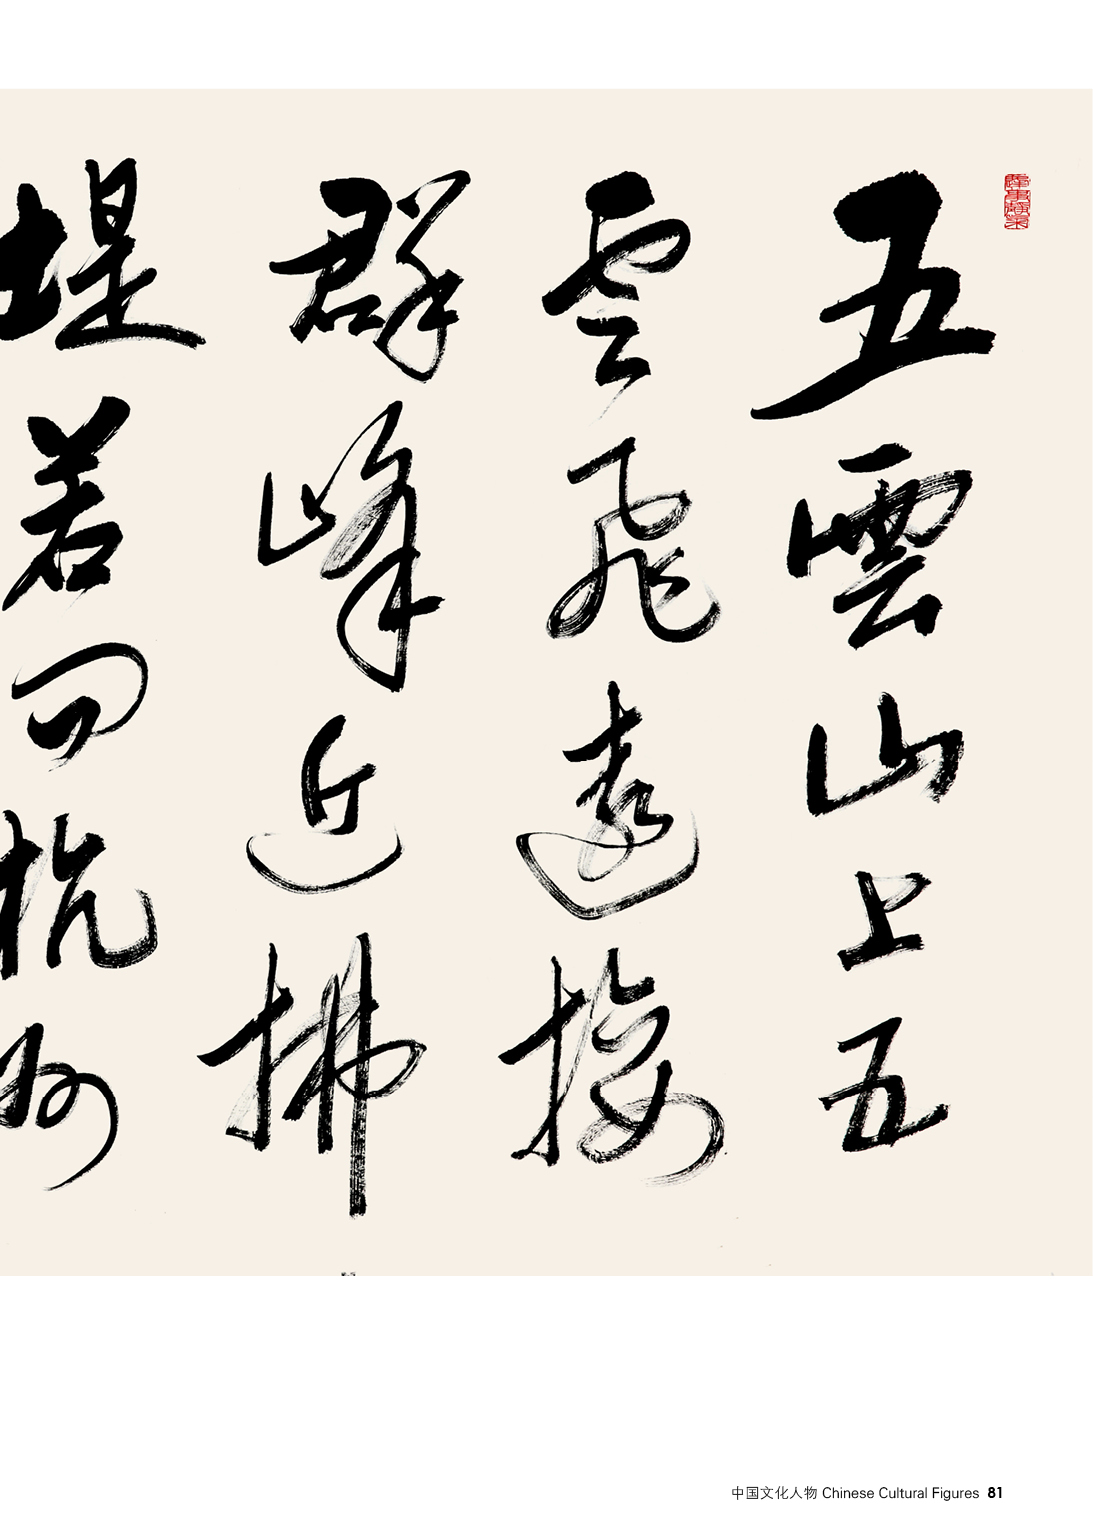 五雲山上五
雲飛遠接
群峰近拂
堤若問杭
州
中国文化人物 Chinese Cultural Figures 81